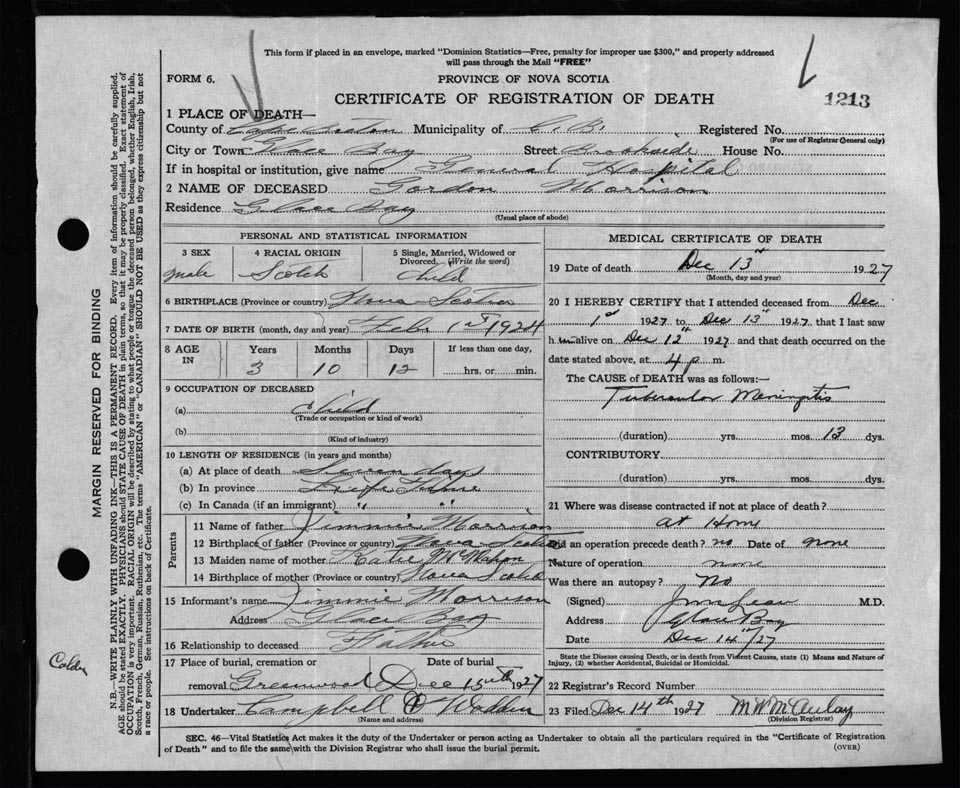 This form if placed in an envelope, marked "Dominion Statistics—Free, penalty for improper use $300," and properly addressed
will pass through the Mail "FREE"
FORM 6.
PROVINCE OF NOVA SCOTIA
CERTIFICATE OF REGISTRATION OF DEATH
1213
1 PLACE OF DEATH—
County of Cape Breton Municipality of C. B. Registered No.
(For use of Registrar General only)
City or Town Glace Bay Street Brookside House No.
If in hospital or institution, give name General Hospital
2 NAME OF DECEASED Gordon Morrison
Residence Glace Bay
(Usual place of abode)
PERSONAL AND STATISTICAL INFORMATION
3 SEX 4 RACIAL ORIGIN 5 Single, Married, Widowed or
Divorced, (Write the word)
male Scotch Child
6 BIRTHPLACE (Province or country) Nova Scotia
7 DATE OF BIRTH (month, day and year) Feb 1st 1924
8 AGE IN Years Months Days If less than one day,
3 10 12 hrs. or min.
9 OCCUPATION OF DECEASED
(a) Child
(Trade or occupation or kind of work)
(b)
(Kind of industry)
10 LENGTH OF RESIDENCE (in years and months)
(a) At place of death Seven days
(b) In province Life Time
(c) In Canada (if an immigrant) " "
Parents
11 Name of father Jimmie Morrison
12 Birthplace of father (Province or country) Nova Scotia
13 Maiden name of mother Katie McMahon
14 Birthplace of mother (Province or country) Nova Scotia
15 Informant's name Jimmie Morrison
Address Glace Bay
16 Relationship to deceased Father
17 Place of burial, cremation or Date of burial
removal Greenwood Dec 15th 1927
18 Undertaker Campbell &
(Name and address)
MEDICAL CERTIFICATE OF DEATH
19 Date of death Dec 13th 1927
(Month, day and year)
20 I HEREBY CERTIFY that I attended deceased from Dec
1st 1927 to Dec 13th 1927 that I last saw
him alive on Dec 12th 1927 and that death occurred on the
date stated above, at 4 p m.
The CAUSE of DEATH was as follows:—
Tubercular Meningitis
(duration) yrs. mos. 13 dys.
CONTRIBUTORY
(duration) yrs. mos. dys.
21 Where was disease contracted if not at place of death?
at Home
Did an operation precede death? no Date of none
Nature of operation none
Was there an autopsy? No
(Signed) M.D.
Address Glace Bay
Date Dec 14th/27
State the Disease causing Death, or in death from Violent Causes, state (1) Means and Nature of
Injury, (2) whether Accidental, Suicidal or Homicidal.
22 Registrar's Record Number
23 Filed Dec 14th 1927 M W McAulay
(Division Registrar)
SEC. 46—Vital Statistics Act makes it the duty of the Undertaker or person acting as Undertaker to obtain all the particulars required in the "Certificate of Registration
of Death" and to file the same with the Division Registrar who shall issue the burial permit.
(OVER)
MARGIN RESERVED FOR BINDING
N.B.—WRITE PLAINLY WITH UNFADING INK—THIS IS A PERMANENT RECORD. Every item of information should be carefully supplied.
AGE should be stated EXACTLY. PHYSICIANS should STATE CAUSE OF DEATH in plain terms, so that it may be properly classified. Exact statement of
OCCUPATION is very important. RACIAL ORIGIN will be described by stating to what people or tongue the deceased person belonged, whether English, Irish,
Scotch, French, German, Russian, Ruthenian, etc. The terms "AMERICAN" or "CANADIAN" SHOULD NOT BE USED as they express citizenship but not
a race or people. See instructions on back of Certificate.